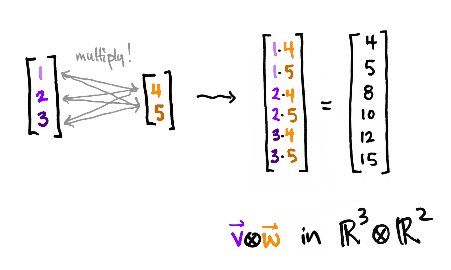 multiply!
1
2
3
4
5
1·4
1·5
2·4
2·5
3·4
3·5
=
4
5
8
10
12
15
v⃗⊗w⃗ in ℝ³⊗ℝ²